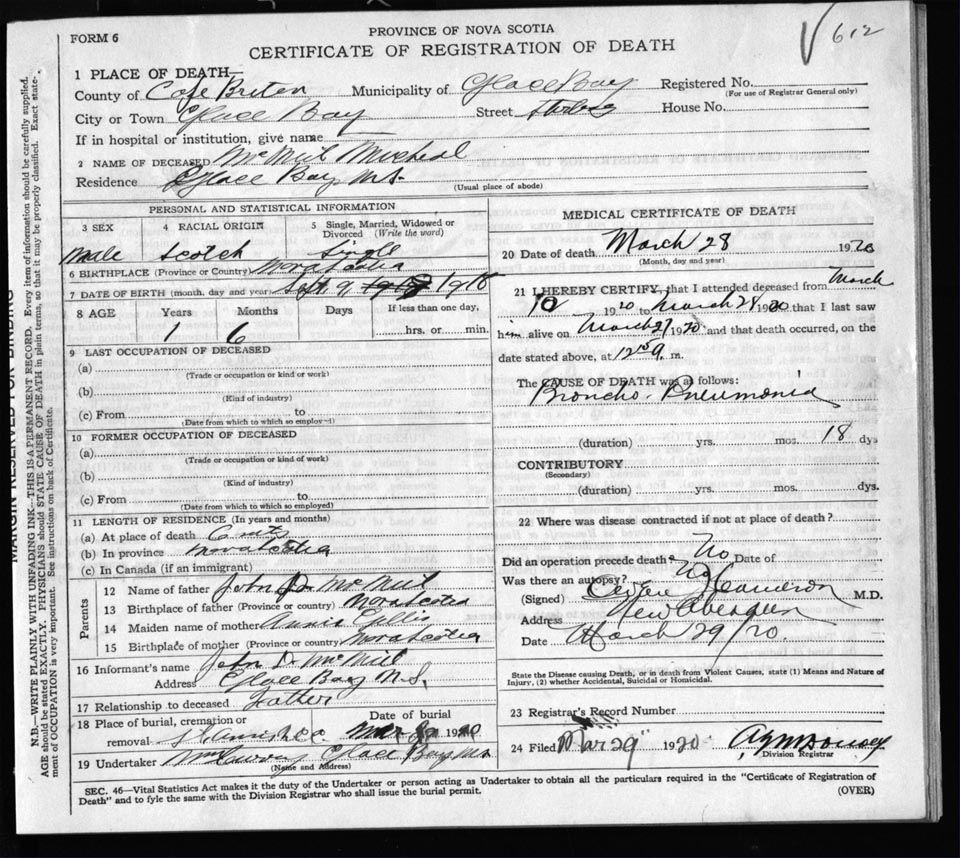 FORM 6
612
PROVINCE OF NOVA SCOTIA
CERTIFICATE OF REGISTRATION OF DEATH
1 PLACE OF DEATH—
County of Cape Breton Municipality of Glace Bay Registered No.
(For use of Registrar General only)
City or Town Glace Bay Street House No.
If in hospital or institution, give name
2 NAME OF DECEASED McNeil Micheal
Residence Glace Bay N.S.
(Usual place of abode)
PERSONAL AND STATISTICAL INFORMATION
3 SEX 4 RACIAL ORIGIN 5 Single, Married, Widowed or
Divorced (Write the word)
Male Scotch Single
6 BIRTHPLACE (Province or Country) Nova Scotia
7 DATE OF BIRTH (month, day and year) Sept 9 1918
8 AGE Years Months Days If less than one day,
1 6 hrs. or min.
9 LAST OCCUPATION OF DECEASED
(a)
(Trade or occupation or kind or work)
(b)
(Kind of industry)
(c) From to
(Date from which to which so employed)
10 FORMER OCCUPATION OF DECEASED
(a)
(Trade or occupation or kind of work)
(b)
(Kind of industry)
(c) From to
(Date from which to which so employed)
11 LENGTH OF RESIDENCE (In years and months)
(a) At place of death
(b) In province Nova Scotia
(c) In Canada (if an immigrant)
Parents
12 Name of father John D. McNeil
13 Birthplace of father (Province or country) Nova Scotia
14 Maiden name of mother Annie Gillis
15 Birthplace of mother (Province or country) Nova Scotia
16 Informant's name John D. McNeil
Address Glace Bay N.S.
17 Relationship to deceased Father
18 Place of burial, cremation or Date of burial
removal 1920
19 Undertaker Glace Bay N.S.
(Name and Address)
MEDICAL CERTIFICATE OF DEATH
20 Date of death March 28 1920
(Month, day and year)
21 I HEREBY CERTIFY, that I attended deceased from March
10 1920 to March 28 1920 that I last saw
him alive on March 27 1920 and that death occurred, on the
date stated above, at m.
The CAUSE OF DEATH was as follows:
Broncho-Pneumonia
(duration) yrs. mos. 18 dys
CONTRIBUTORY
(Secondary)
(duration) yrs. mos. dys.
22 Where was disease contracted if not at place of death?
Did an operation precede death? No Date of
Was there an autopsy? No
(Signed) Cameron M.D.
Address New Aberdeen
Date March 29/20
State the Disease causing Death, or in death from Violent Causes, state (1) Means and Nature of
Injury, (2) whether Accidental, Suicidal or Homicidal.
23 Registrar's Record Number
24 Filed Mar 29 1920
Division Registrar
SEC. 46—Vital Statistics Act makes it the duty of the Undertaker or person acting as Undertaker to obtain all the particulars required in the "Certificate of Registration of
Death" and to fyle the same with the Division Registrar who shall issue the burial permit. (OVER)
MARGIN RESERVED FOR BINDING
N.B.—WRITE PLAINLY WITH UNFADING INK—THIS IS A PERMANENT RECORD. Every item of information should be carefully supplied.
AGE should be stated EXACTLY. PHYSICIANS should STATE CAUSE OF DEATH in plain terms, so that it may be properly classified. Exact state-
ment of OCCUPATION is very important. See instructions on back of Certificate.